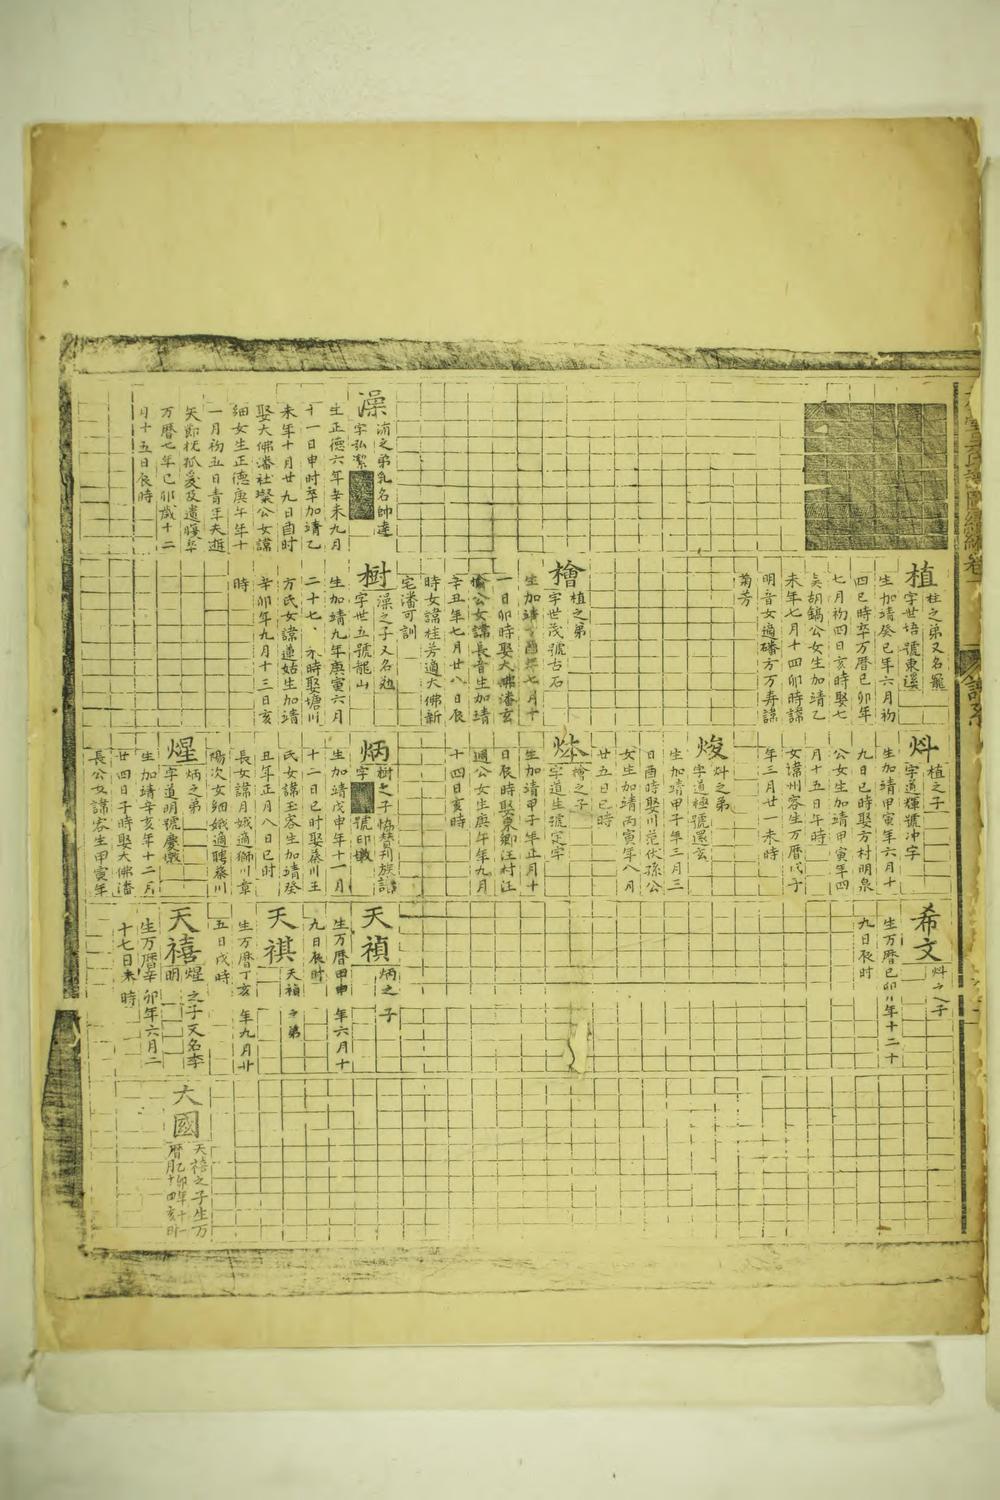 澡
洧之弟乳名帥達
字弘潔
生正德六年辛未九月
十一日申時卒加靖乙
未年十月廿九日酉時
娶大佛潘社璨公女諱
細女生正德庚午年十
一月初五日青年夫逝
矢節撫孤爰及遺腹卒
万曆七年己卯歲十二
月十五日辰時
植
柱之弟又名寵
字世培號東溪
生加靖癸巳年六月初
四巳時卒万曆己卯年
七月初四日亥時娶七
吳胡鎬公女生加靖乙
未年七月十四卯時諱
明音女適磻方万寿諱
菊芳
檜
植之弟
字世茂號古石
生加靖
年七月十
一日卯時娶大佛潘玄
公女諱長音生加靖
辛丑年七月廿八日辰
時女諱桂芳適大佛新
宅潘可訓
樹
澡之子又名
字世五號龍山
生加靖九年庚寅六月
二十七
時娶塘川
方氏女諱蓮姑生加靖
辛卯年九月十三日亥
時
炓
植之子
字道輝號冲宇
生加靖甲寅年六月十
九日巳時娶方村明泉
公女生加靖甲寅年四
月十五日午時
女諱州容生万曆戊子
年三月廿一未時
焌
炓之弟
字道極號還玄
生加靖甲子年三月三
日酉時娶川范伏孫公
女生加靖丙寅年八月
廿五日巳時
檜之子
字道生號定宇
生加靖甲子年正月十
日辰時娶東鄉汪村江
週公女生庚午年九月
十四日亥時
炳
樹之子恊賛刊族譜
字
號印
生加靖戊申年十一月
十二日巳时娶藤川王
氏女諱玉容生加靖癸
丑年正月八日巳时
長女諱月娥適獅川章
陽次女細娥適聘藤川
煋
炳之弟
字道明號慶
生加靖辛亥年十二月
廿四日子時娶大佛潘
長公女諱容生甲寅年
希文
炓之子
生万曆己卯年十二十
九日辰时
天禎
炳之子
生万曆甲申年六月十
九日辰时
天祺
天禎之弟
生万曆丁亥年九月廿
五日戌時
天禧
煋之子又名李
明
生万曆辛卯年六月二
十七日未時
大國
天禧之子生万
曆乙卯年十一
月十四亥时